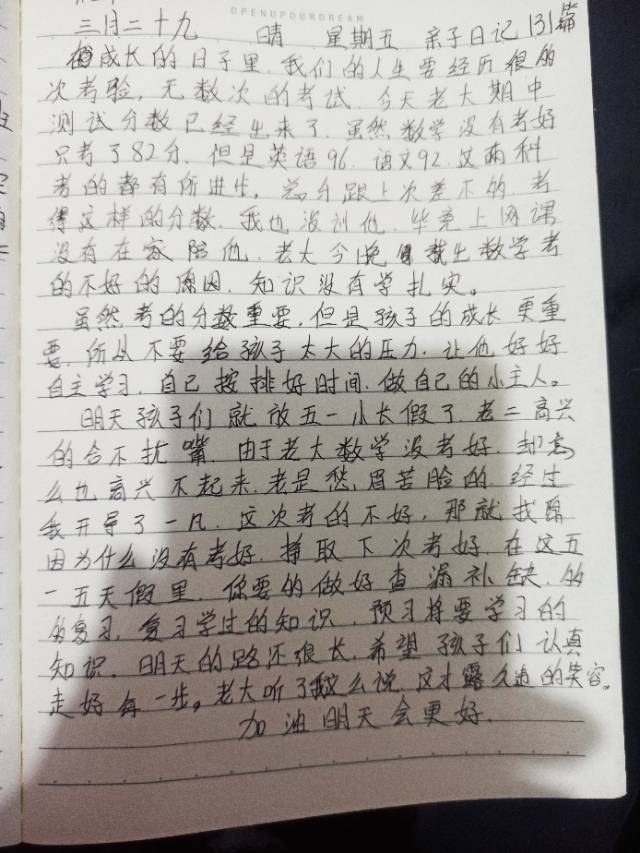 OPENUPOURDREAM
三月二十九 晴 星期五 亲子日记131篇
在成长的日子里,我们的人生要经历很多
次考验,无数次的考试.今天老大期中
测试分数已经出来了.虽然数学没有考好
只考了82分.但是英语96.语文92.这两科
考的都有所进步.总分跟上次差不多.考
得这样的分数.我也没训他.毕竟上网课
没有在家陪他.老大今晚 找出数学考
的不好的原因.知识没有学扎实。
虽然考的分数重要,但是孩子的成长更重
要.所以不要给孩子太大的压力.让他好好
自主学习.自己按排好时间.做自己的小主人。
明天孩子们就放五一小长假了.老二高兴
的合不扰嘴.由于老大数学没考好.却怎
么也高兴不起来.老是愁眉苦脸的.经过
我开导了一凡.这次考的不好,那就找原
因为什么没有考好.择取下次考好.在这五
一五天假里.你要的做好查漏补缺.多
多复习.复习学过的知识.预习将要学习的
知识.明天的路还很长.希望孩子们认真
走好每一步。老大听了我这么说.这才露久违的笑容。
加油明天会更好.